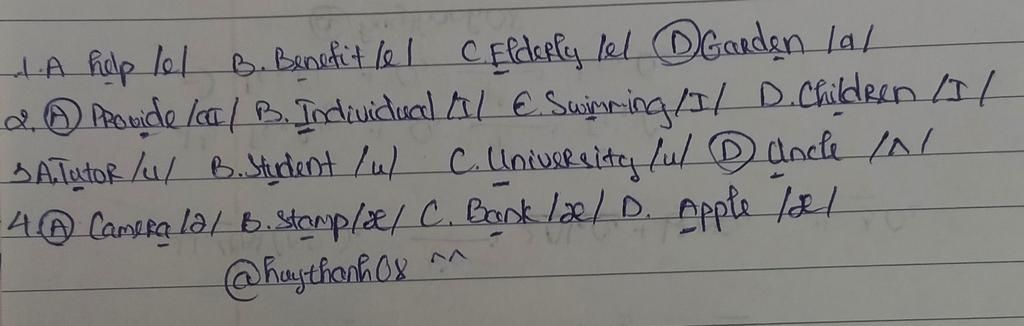 1. A help /e/ B. Benefit /e/ C. Elderly /e/ D Garden /a/
2. A Provide /aI/ B. Individual /I/ C. Swimming /I/ D. Children /I/
3 A. Tutor /u/ B. Student /u/ C. University /u/ D Uncle /ʌ/
4 A Camera /ə/ B. Stamp /æ/ C. Bank /æ/ D. Apple /æ/
@huythanh08 ^^